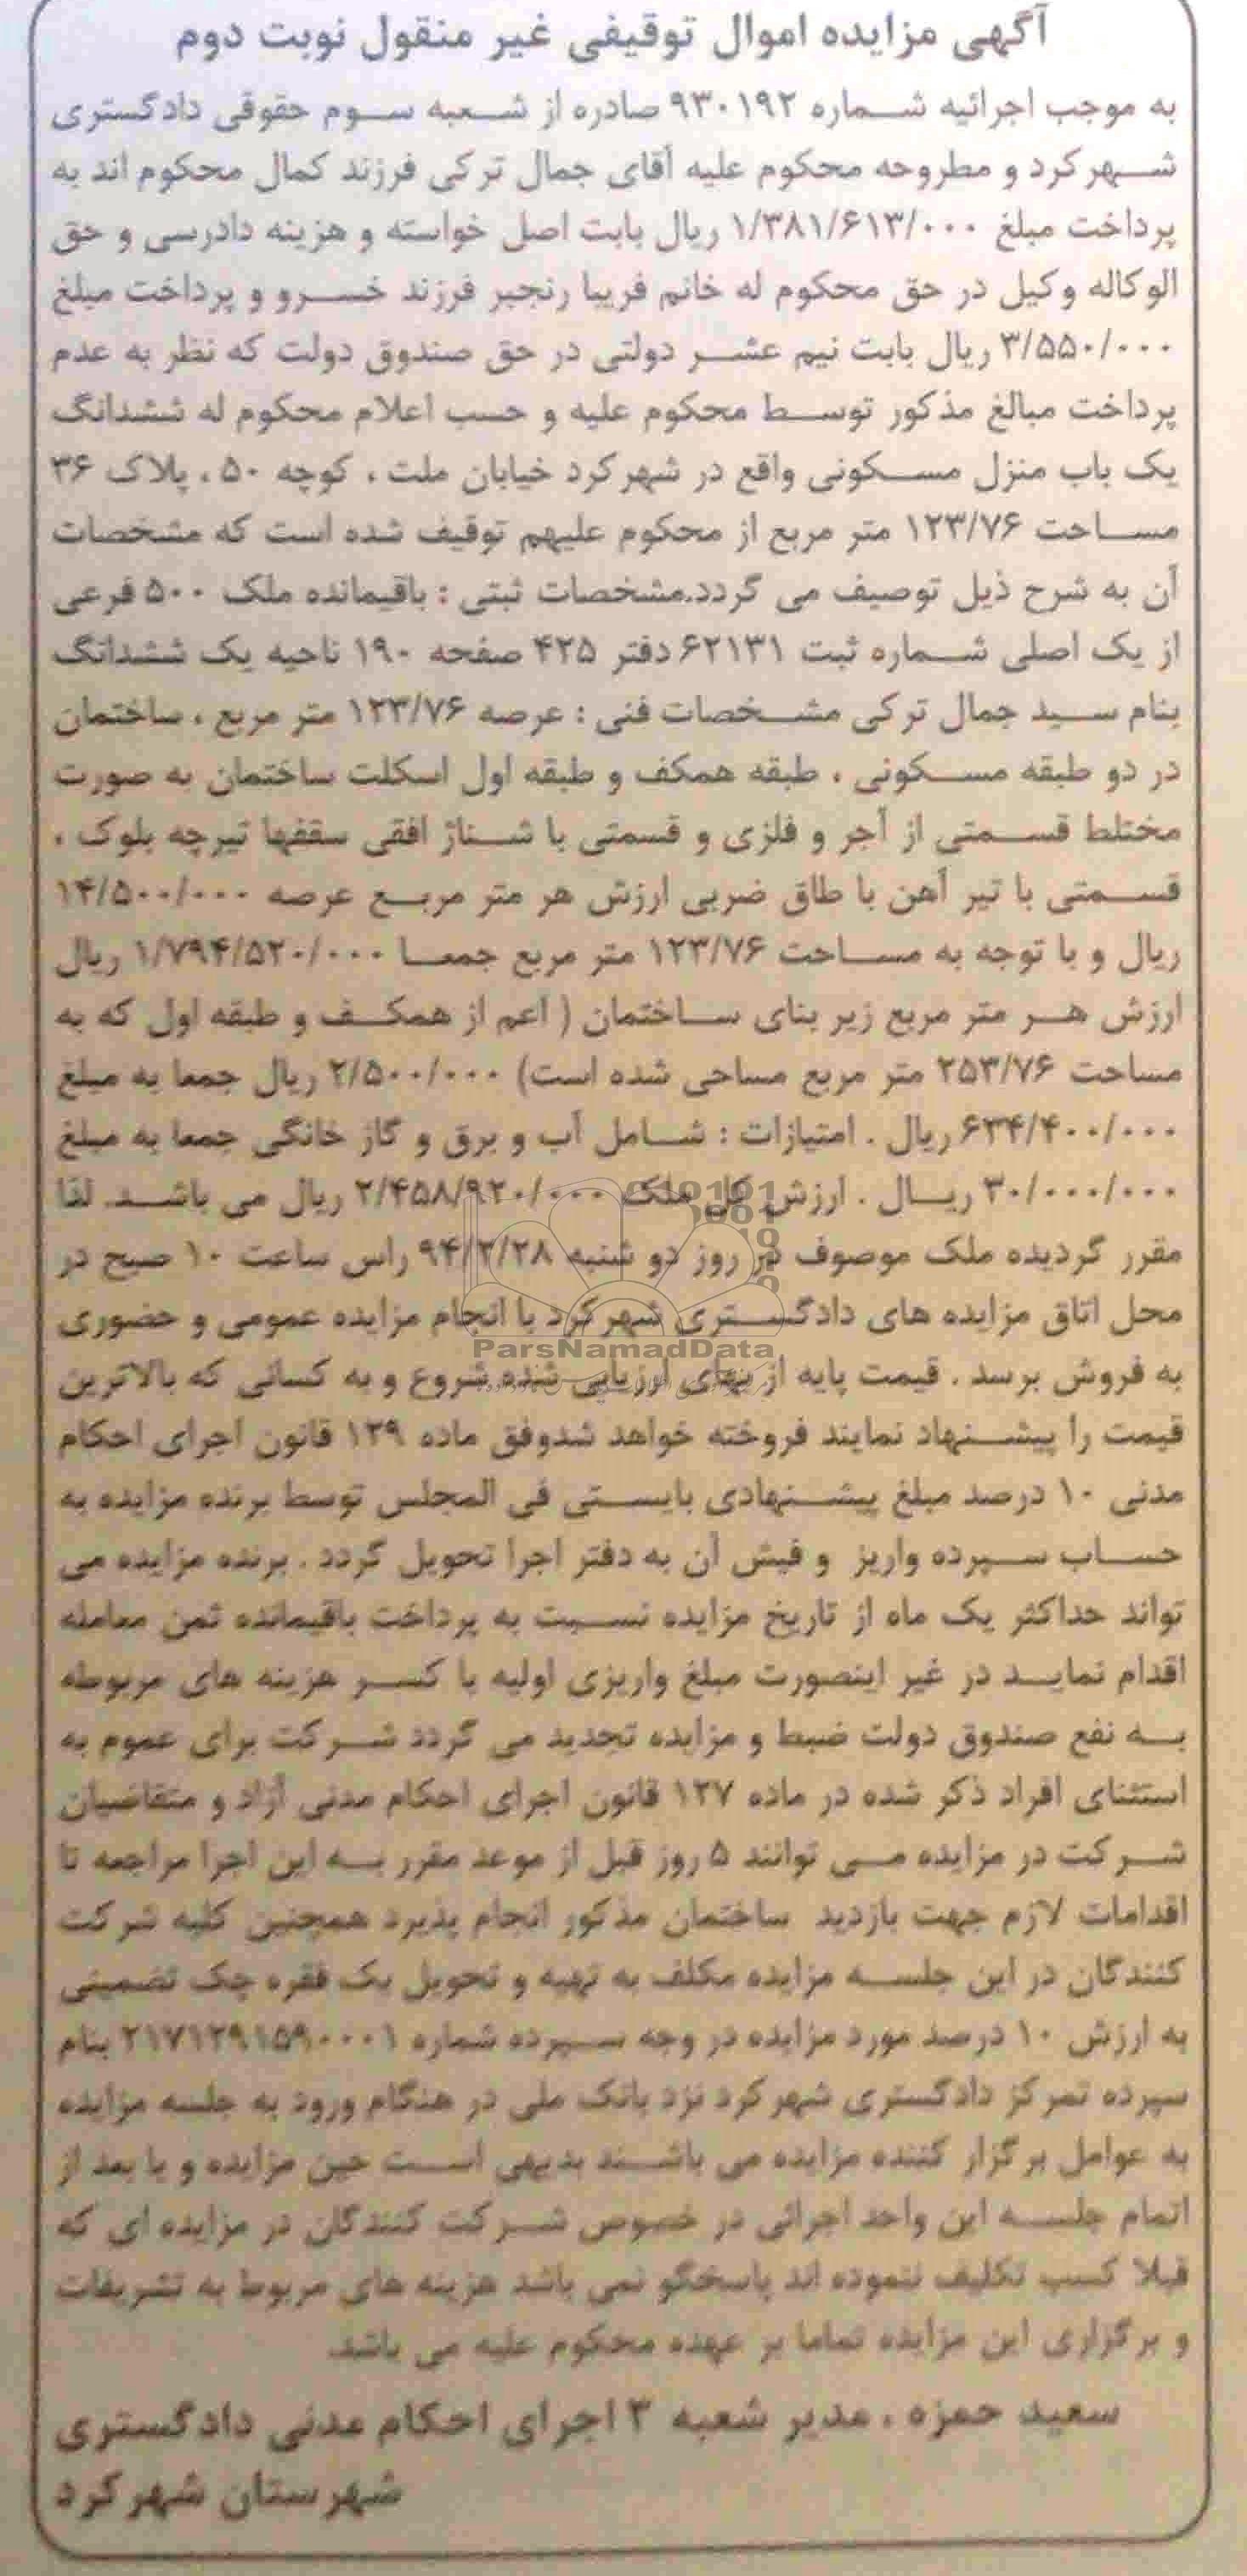 آگهی مزایده اموال توقیفی غیر منقول نوبت دوم
به موجب اجرائیه شماره ۹۳۰۱۹۲ صادره از شعبه سوم حقوقی دادگستری
شهرکرد و مطروحه محکوم علیه آقای جمال ترکی فرزند کمال محکوم اند به
پرداخت مبلغ ۱/۳۸۱/۶۱۳/۰۰۰ ریال بابت اصل خواسته و هزینه دادرسی و حق
الوکاله وکیل در حق محکوم له خانم فریبا رنجبر فرزند خسرو و پرداخت مبلغ
۳/۵۵۰/۰۰۰ ریال بابت نیم عشر دولتی در حق صندوق دولت که نظر به عدم
پرداخت مبالغ مذکور توسط محکوم علیه و حسب اعلام محکوم له ششدانگ
یک باب منزل مسکونی واقع در شهرکرد خیابان ملت ، کوچه ۵۰ ، پلاک ۳۶
مساحت ۱۲۳/۷۶ متر مربع از محکوم علیهم توقیف شده است که مشخصات
آن به شرح ذیل توصیف می گردد.مشخصات ثبتی : باقیمانده ملک ۵۰۰ فرعی
از یک اصلی شماره ثبت ۶۲۱۳۱ دفتر ۴۲۵ صفحه ۱۹۰ ناحیه یک ششدانگ
بنام سید جمال ترکی مشخصات فنی : عرصه ۱۲۳/۷۶ متر مربع ، ساختمان
در دو طبقه مسکونی ، طبقه همکف و طبقه اول اسکلت ساختمان به صورت
مختلط قسمتی از آجر و فلزی و قسمتی با شناژ افقی سقفها تیرچه بلوک ،
قسمتی با تیر آهن با طاق ضربی ارزش هر متر مربع عرصه ۱۴/۵۰۰/۰۰۰
ریال و با توجه به مساحت ۱۲۳/۷۶ متر مربع جمعا ۱/۷۹۴/۵۲۰/۰۰۰ ریال
ارزش هر متر مربع زیر بنای ساختمان ( اعم از همکف و طبقه اول که به
مساحت ۲۵۳/۷۶ متر مربع مساحی شده است) ۲/۵۰۰/۰۰۰ ریال جمعا به مبلغ
۶۳۴/۴۰۰/۰۰۰ ریال . امتیازات : شامل آب و برق و گاز خانگی جمعا به مبلغ
۳۰/۰۰۰/۰۰۰ ریال . ارزش کل ملک ۲/۴۵۸/۹۲۰/۰۰۰ ریال می باشد. لذا
مقرر گردیده ملک موصوف در روز دو شنبه ۹۴/۲/۲۸ راس ساعت ۱۰ صبح در
محل اتاق مزایده های دادگستری شهرکرد با انجام مزایده عمومی و حضوری
ParsNamadData
به فروش برسد . قیمت پایه از بهای ارزیابی شده شروع و به کسانی که بالاترین
قیمت را پیشنهاد نمایند فروخته خواهد شدوفق ماده ۱۲۹ قانون اجرای احکام
مدنی ۱۰ درصد مبلغ پیشنهادی بایستی فی المجلس توسط برنده مزایده به
حساب سپرده واریز و فیش آن به دفتر اجرا تحویل گردد . برنده مزایده می
تواند حداکثر یک ماه از تاریخ مزایده نسبت به پرداخت باقیمانده ثمن معامله
اقدام نماید در غیر اینصورت مبلغ واریزی اولیه با کسر هزینه های مربوطه
به نفع صندوق دولت ضبط و مزایده تجدید می گردد شرکت برای عموم به
استثنای افراد ذکر شده در ماده ۱۲۷ قانون اجرای احکام مدنی آزاد و متقاضیان
شرکت در مزایده می توانند ۵ روز قبل از موعد مقرر به این اجرا مراجعه تا
اقدامات لازم جهت بازدید ساختمان مذکور انجام پذیرد همچنین کلیه شرکت
کنندگان در این جلسه مزایده مکلف به تهیه و تحویل یک فقره چک تضمینی
به ارزش ۱۰ درصد مورد مزایده در وجه سپرده شماره ۲۱۷۱۲۹۱۵۹۰۰۰۱ بنام
سپرده تمرکز دادگستری شهرکرد نزد بانک ملی در هنگام ورود به جلسه مزایده
به عوامل برگزار کننده مزایده می باشند بدیهی است حین مزایده و یا بعد از
اتمام جلسه این واحد اجرائی در خصوص شرکت کنندگان در مزایده ای که
قبلا کسب تکلیف ننموده اند پاسخگو نمی باشد هزینه های مربوط به تشریفات
و برگزاری این مزایده تماما بر عهده محکوم علیه می باشد.
سعید حمزه ، مدیر شعبه ۳ اجرای احکام مدنی دادگستری
شهرستان شهرکرد